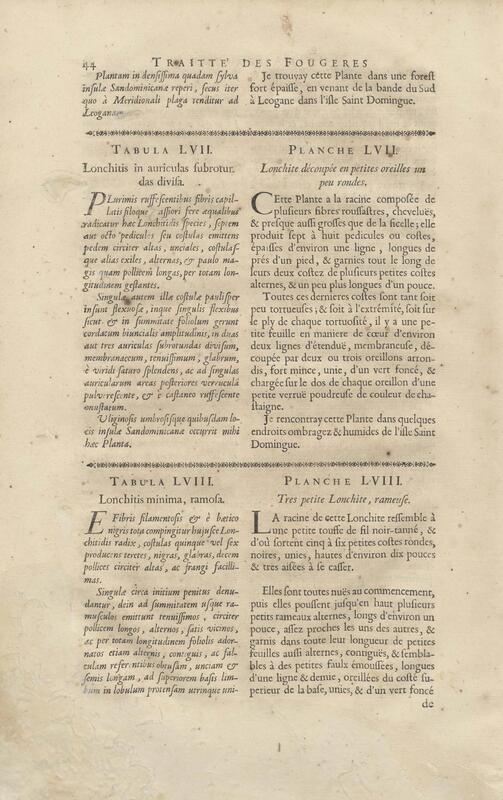 44
TRAITTÉ DES FOUGERES
Plantam in densissima quadam sylva
insulæ Sandominicanæ reperi, secus iter
quo à Meridionali plaga tenditur ad
Leoganam.
TABULA LVII.
Lonchitis in auriculas subrotun
das divisa.
PLurimis ruffescentibus fibris capil-
latis filoque assiori fere æqualibus
radicatur hæc Lonchitidis species, septem
aut octo pediculos seu costulas emittens
pedem circiter altas, unciales, costulas-
que alias exiles, alternas, & paulo ma-
gis quam pollicem longas, per totam lon-
gitudinem gestantes.
Singulæ autem illæ costulæ paulisper
insunt flexuosæ, inque singulis flexibus
sicut & in summitate foliolum gerunt
cordatum biuncialis amplitudinis, in duas
aut tres auriculas subrotundas divisum,
membranaceum, tenuissimum, glabrum,
è viridi saturo splendens, ac ad singulas
auricularum areas posteriores verruculâ
pulverescente, & è castaneo ruffescente
onustatum.
Uliginosis umbrosisque quibusdam lo-
cis insulæ Sandominicanæ occurrit mihi
hæc Planta.
TABULA LVIII.
Lonchitis minima, ramosa.
E Fibris filamentosis & è bætico
nigris tota compingitur hujusce Lon-
chitidis radix, costulas quinque vel sex
producens teretes, nigras, glabras, decem
pollices circiter altas, ac frangi facilli-
mas.
Singulæ circa initium penitus denu-
dantur, dein ad summitatem usque ra-
musculos emittunt tenuissimos, circiter
pollicem longos, alternos, satis vicinos,
ac per totam longitudinem foliolis ador-
natos etiam alternis, contiguis, ac fal-
culam referentibus obtusam, unciam &
semis longam, ad superiorem basis lim-
bum in lobulum protensam utrinque uni-
Je trouvay cette Plante dans une forest
fort épaisse, en venant de la bande du Sud
à Leogane dans l'isle Saint Domingue.
PLANCHE LVII.
Lonchite découpée en petites oreilles un
peu rondes.
CEtte Plante a la racine composée de
plusieurs fibres roussastres, cheveluës,
& presque aussi grosses que de la ficelle; elle
produit sept à huit pedicules ou costes,
épaisses d'environ une ligne, longues de
prés d'un pied, & garnies tout le long de
leurs deux costez de plusieurs petites costes
alternes, & un peu plus longues d'un pouce.
Toutes ces dernieres costes sont tant soit
peu tortueuses; & soit à l'extrémité, soit sur
le ply de chaque tortuosité, il y a une pe-
tite feuille en maniere de cœur d'environ
deux lignes d'étenduë, membraneuse, dé-
coupée par deux ou trois oreillons arron-
dis, fort mince, unie, d'un vert foncé, &
chargée sur le dos de chaque oreillon d'une
petite verruë poudreuse de couleur de cha-
staigne.
Je rencontray cette Plante dans quelques
endroits ombragez & humides de l'isle Saint
Domingue.
PLANCHE LVIII.
Tres petite Lonchite, rameuse.
LA racine de cette Lonchite ressemble à
une petite tousse de fil noir-tanné, &
d'où sortent cinq à six petites costes rondes,
noires, unies, hautes d'environ dix pouces
& tres aisées à se casser.
Elles sont toutes nuës au commencement,
puis elles poussent jusqu'en haut plusieurs
petits rameaux alternes, longs d'environ un
pouce, assez proches les uns des autres, &
garnis dans toute leur longueur de petites
feuilles aussi alternes, contiguës, & sembla-
bles à des petites faulx émoussées, longues
d'une ligne & demie, oreillées du costé su-
perieur de la base, unies, & d'un vert foncé
de